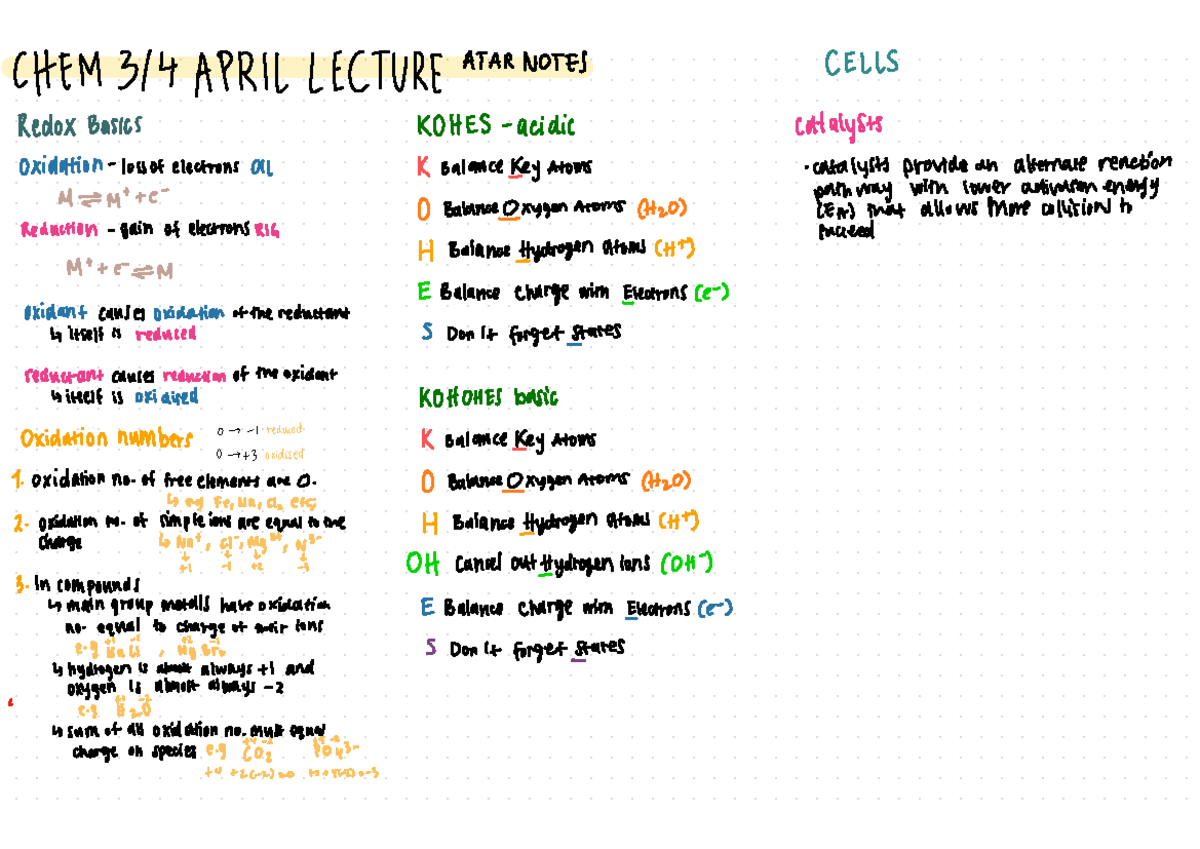 CHEM 3/4 APRIL LECTURE ATAR NOTES
Redox Basics
Oxidation - loss of electrons OIL
M ⇌ M⁺ + e⁻
Reduction - gain of electrons RIG
M⁺ + e⁻ ⇌ M
Oxidant causes oxidation of the reductant
↳ itself is reduced
reductant causes reduction of the oxidant
↳ itself is oxidised
Oxidation numbers
0 → -1 reduced
0 → +3 oxidised
1. oxidation no. of free elements are 0.
↳ eg Fe, Na, Cl₂ etc
2. oxidation no. of simple ions are equal to the
charge
↳ Na⁺, Cl⁻, Mg²⁺, N³⁻
+1 -1 +2 -3
3. In compounds
↳ main group metals have oxidation
no. equal to charge of their ions
e.g
↳ hydrogen is almost always +1 and
oxygen is almost always -2
e.g H₂O
↳ sum of all oxidation no. must equal
charge on species e.g CO₂ PO₄³⁻
+4 +2(-2)=0
KOHES - acidic
K Balance Key Atoms
O Balance Oxygen Atoms (H₂O)
H Balance Hydrogen atoms (H⁺)
E Balance charge with Electrons (e⁻)
S Don't forget States
KOHOHES basic
K Balance Key Atoms
O Balance Oxygen Atoms (H₂O)
H Balance Hydrogen atoms (H⁺)
OH Cancel out Hydrogen ions (OH⁻)
E Balance charge with Electrons (e⁻)
S Don't forget States
CELLS
Catalysts
· catalysts provide an alternate reaction
pathway with lower activation energy
(EA) that allows more collision to
succeed